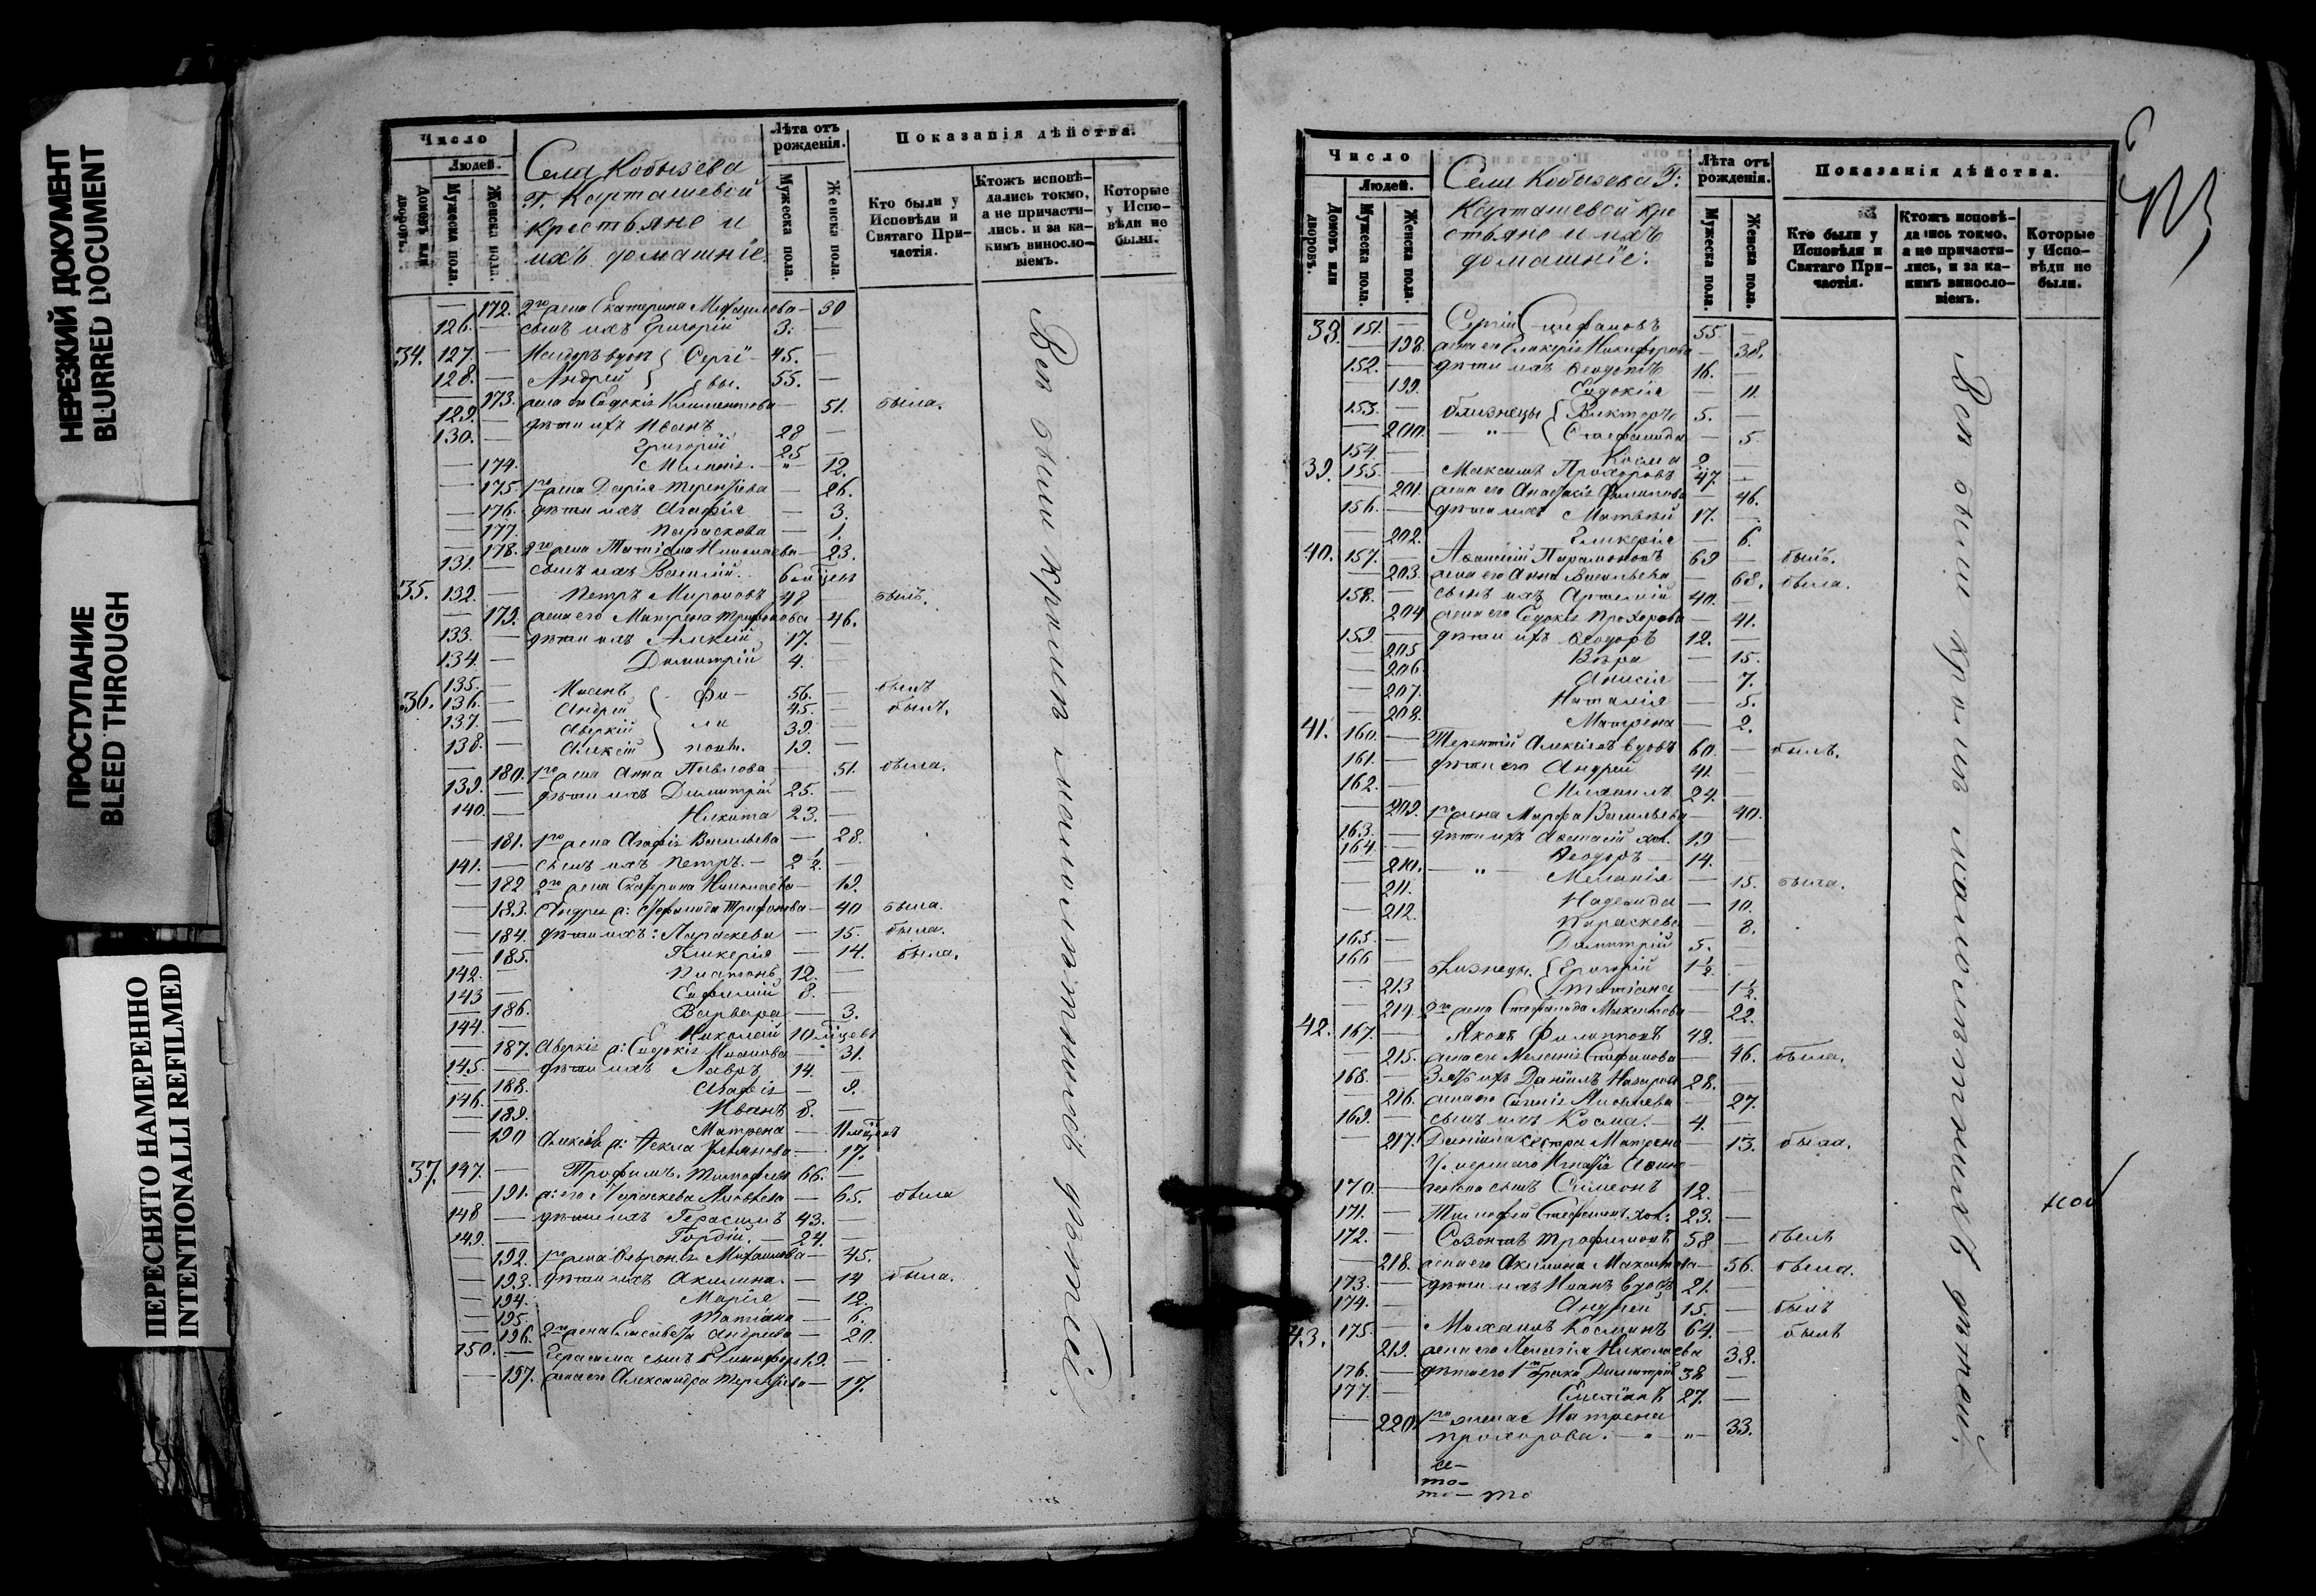 НЕРЕЗКИЙ ДОКУМЕНТ
BLURRED DOCUMENT
ПРОСТУПАНИЕ
BLEED THROUGH
ПЕРЕСНЯТО НАМЕРЕННО
INTENTIONALLI REFILMED
Число
Людей.
Домовъ или дворовъ.
Мужеска пола.
Женска пола.
Села Кобызева
Г. Карташевой
крестьяне и
ихъ домашніе.
Лѣта отъ рожденія.
Мужеска пола.
Женска пола.
Показанія дѣйства.
Кто были у Исповѣди и Святаго Причастія.
Ктожъ исповѣдались токмо, а не причастились. и за какимъ винословіемъ.
Которые у Исповѣди не были.
172. 2го жена Екатерина — 30
126. — сынъ ихъ Григорій 3. —
34. 127. — вдовъ Сергѣ- 45. —
128. — Андрей вы. 55. —
173. жена Евдокія Климентова — 51. была.
129. — дѣти ихъ Иванъ 28 —
130. — Григорій 25 —
174. " 12.
175. 1го жена Дарія Терентіева — 26.
176. дѣти ихъ Агафія — 3.
177. Параскева — 1.
178. 2го жена Татіана Николаева — 23.
131. — сынъ ихъ Василій. 6 мѣсцевъ
35. 132. — Петръ Мироновъ 48 — былъ.
179. жена его Матрена Трифонова — 46.
133. — дѣти ихъ 17. —
134. — Димитрій 4. —
135. — фи- 56. — былъ
36. 136. — Андрей 45. — былъ.
137. — Аверкій ли 39. —
138. — Алексѣй повы. 19. —
180. 1го жена Анна Павлова — 51. была.
139. — дѣти ихъ Димитрій 25. —
140. — Никита 23. —
181. 1го жена Агафія Васильева — 28.
141. — сынъ ихъ Петръ. — 2 1/2. —
182 2го жена Екатерина Николаева — 19.
183. Андрея ж: Стефанида Трифонова — 40 была.
184. дѣти ихъ: Параскева — 15. была.
185. Гликерія — 14. была.
142. — Платонъ 12. —
143 — Евфимій 8. —
186. Варвара — 3.
144. — Николай 10 мѣсцевъ
187. Аверкія ж: Евдокія Иванова — 31.
145. — дѣти ихъ Лавръ 14. —
188. Агафія — 9.
146. — Иванъ 8. —
189. Матрена — 11 мѣсцевъ
190 Алексѣя ж: Ѳекла Ульянова — 17.
37. 147. — Трофимъ Тимофеевъ 66. —
191. ж: его Параскева Яковлева — 65. была
148 — дѣти ихъ Герасимъ 43. —
149. — Гордій. — 24. —
192. 1го жена Ѳевронія Михайлова — 45.
193. дѣти ихъ Акилина. — 14 была.
194. Марія — 12.
195. Татіана — 6.
196. 2го жена Елисавета Андреева — 20.
150. — Герасима сынъ Никифоръ 19. —
197. жена его Александра Терентіева — 17.
Всѣ были кромѣ малолѣтнихъ дѣтей.
Число
Людей.
Домовъ или дворовъ.
Мужеска пола.
Женска пола.
Села Кобызева Г:
Карташевой кре
стьяне и ихъ
домашніе.
Лѣта отъ рожденія.
Мужеска пола.
Женска пола.
Показанія дѣйства.
Кто были у Исповѣди и Святаго Причастія.
Ктожъ исповѣдались токмо, а не причастились, и за какимъ винословіемъ.
Которые у Исповѣди не были.
38. 151. — Сергій Стефановъ 55. —
198. жена его Гликерія Никифорова — 38.
152. — дѣти ихъ Ѳеодотъ 16. —
199. Евдокія — 11
153. — близнецы Викторъ 5. —
200. — " — Стефанида — 5.
154. — Косма 2 —
39. 155. — Максимъ Прохоровъ 47. —
201. жена его Анастасія Филипова — 46.
156. — дѣти ихъ Матвѣй 17. —
202. Гликерія — 6.
40. 157. — Парамоновъ 69 — былъ.
203. жена его Анна Васильева — 68. была.
158. — сынъ ихъ Артемій 40. —
204 жена его Евдокія Прохорова — 41.
159. — дѣти ихъ Ѳеодоръ 12. —
205 Вѣра — 15.
206 Анисія — 7.
207. Наталія — 5.
208. Матрена — 2.
41. 160. — Терентій Алексѣевъ вдовъ 60. — былъ.
161. — дѣти его Андрей 41. —
162. — Михаилъ 24. —
209. 1го жена Марфа Васильева — 40.
163. — дѣти ихъ хол. 19 —
164. — Ѳеодоръ — 14. —
210. — " — Меланія — 15. была.
211. Надежда — 10.
212. Параскева — 8.
165. — Димитрій 5. —
166 — близнецы Григорій 1 1/2. —
213 Татіана — 1 1/2.
214. 2го жена Стефанида — 22.
42. 167. — Яковъ Филипповъ 48. —
215. жена его Меланія Стефанова — 46. была.
168. — Зять ихъ Даніилъ Назаровъ 28. —
216. жена его Яковлева — 27.
169. — сынъ ихъ Косма. — 4. —
217. Даніила сестра Матрена — 13. была.
170. — сынъ Симеонъ 12. —
171. — Тимофей Стефановъ хол: 23. —
172. — Созонтъ Трофимовъ 58 — былъ
218. жена его Акилина — 56. была.
173. — дѣти ихъ Иванъ вдовъ 21. —
174. — Андрей 15. — былъ
43. 175. — Михаилъ Косминъ 64. — былъ
219. жена его Пелагія Николаева 38.
176. — дѣти его 1го брака Димитрій 38 —
177. — Емеліанъ 27. —
220. 1го жена Матрена
Прохорова. — " — " — 33.
Всѣ были кромѣ малолѣтнихъ дѣтей.